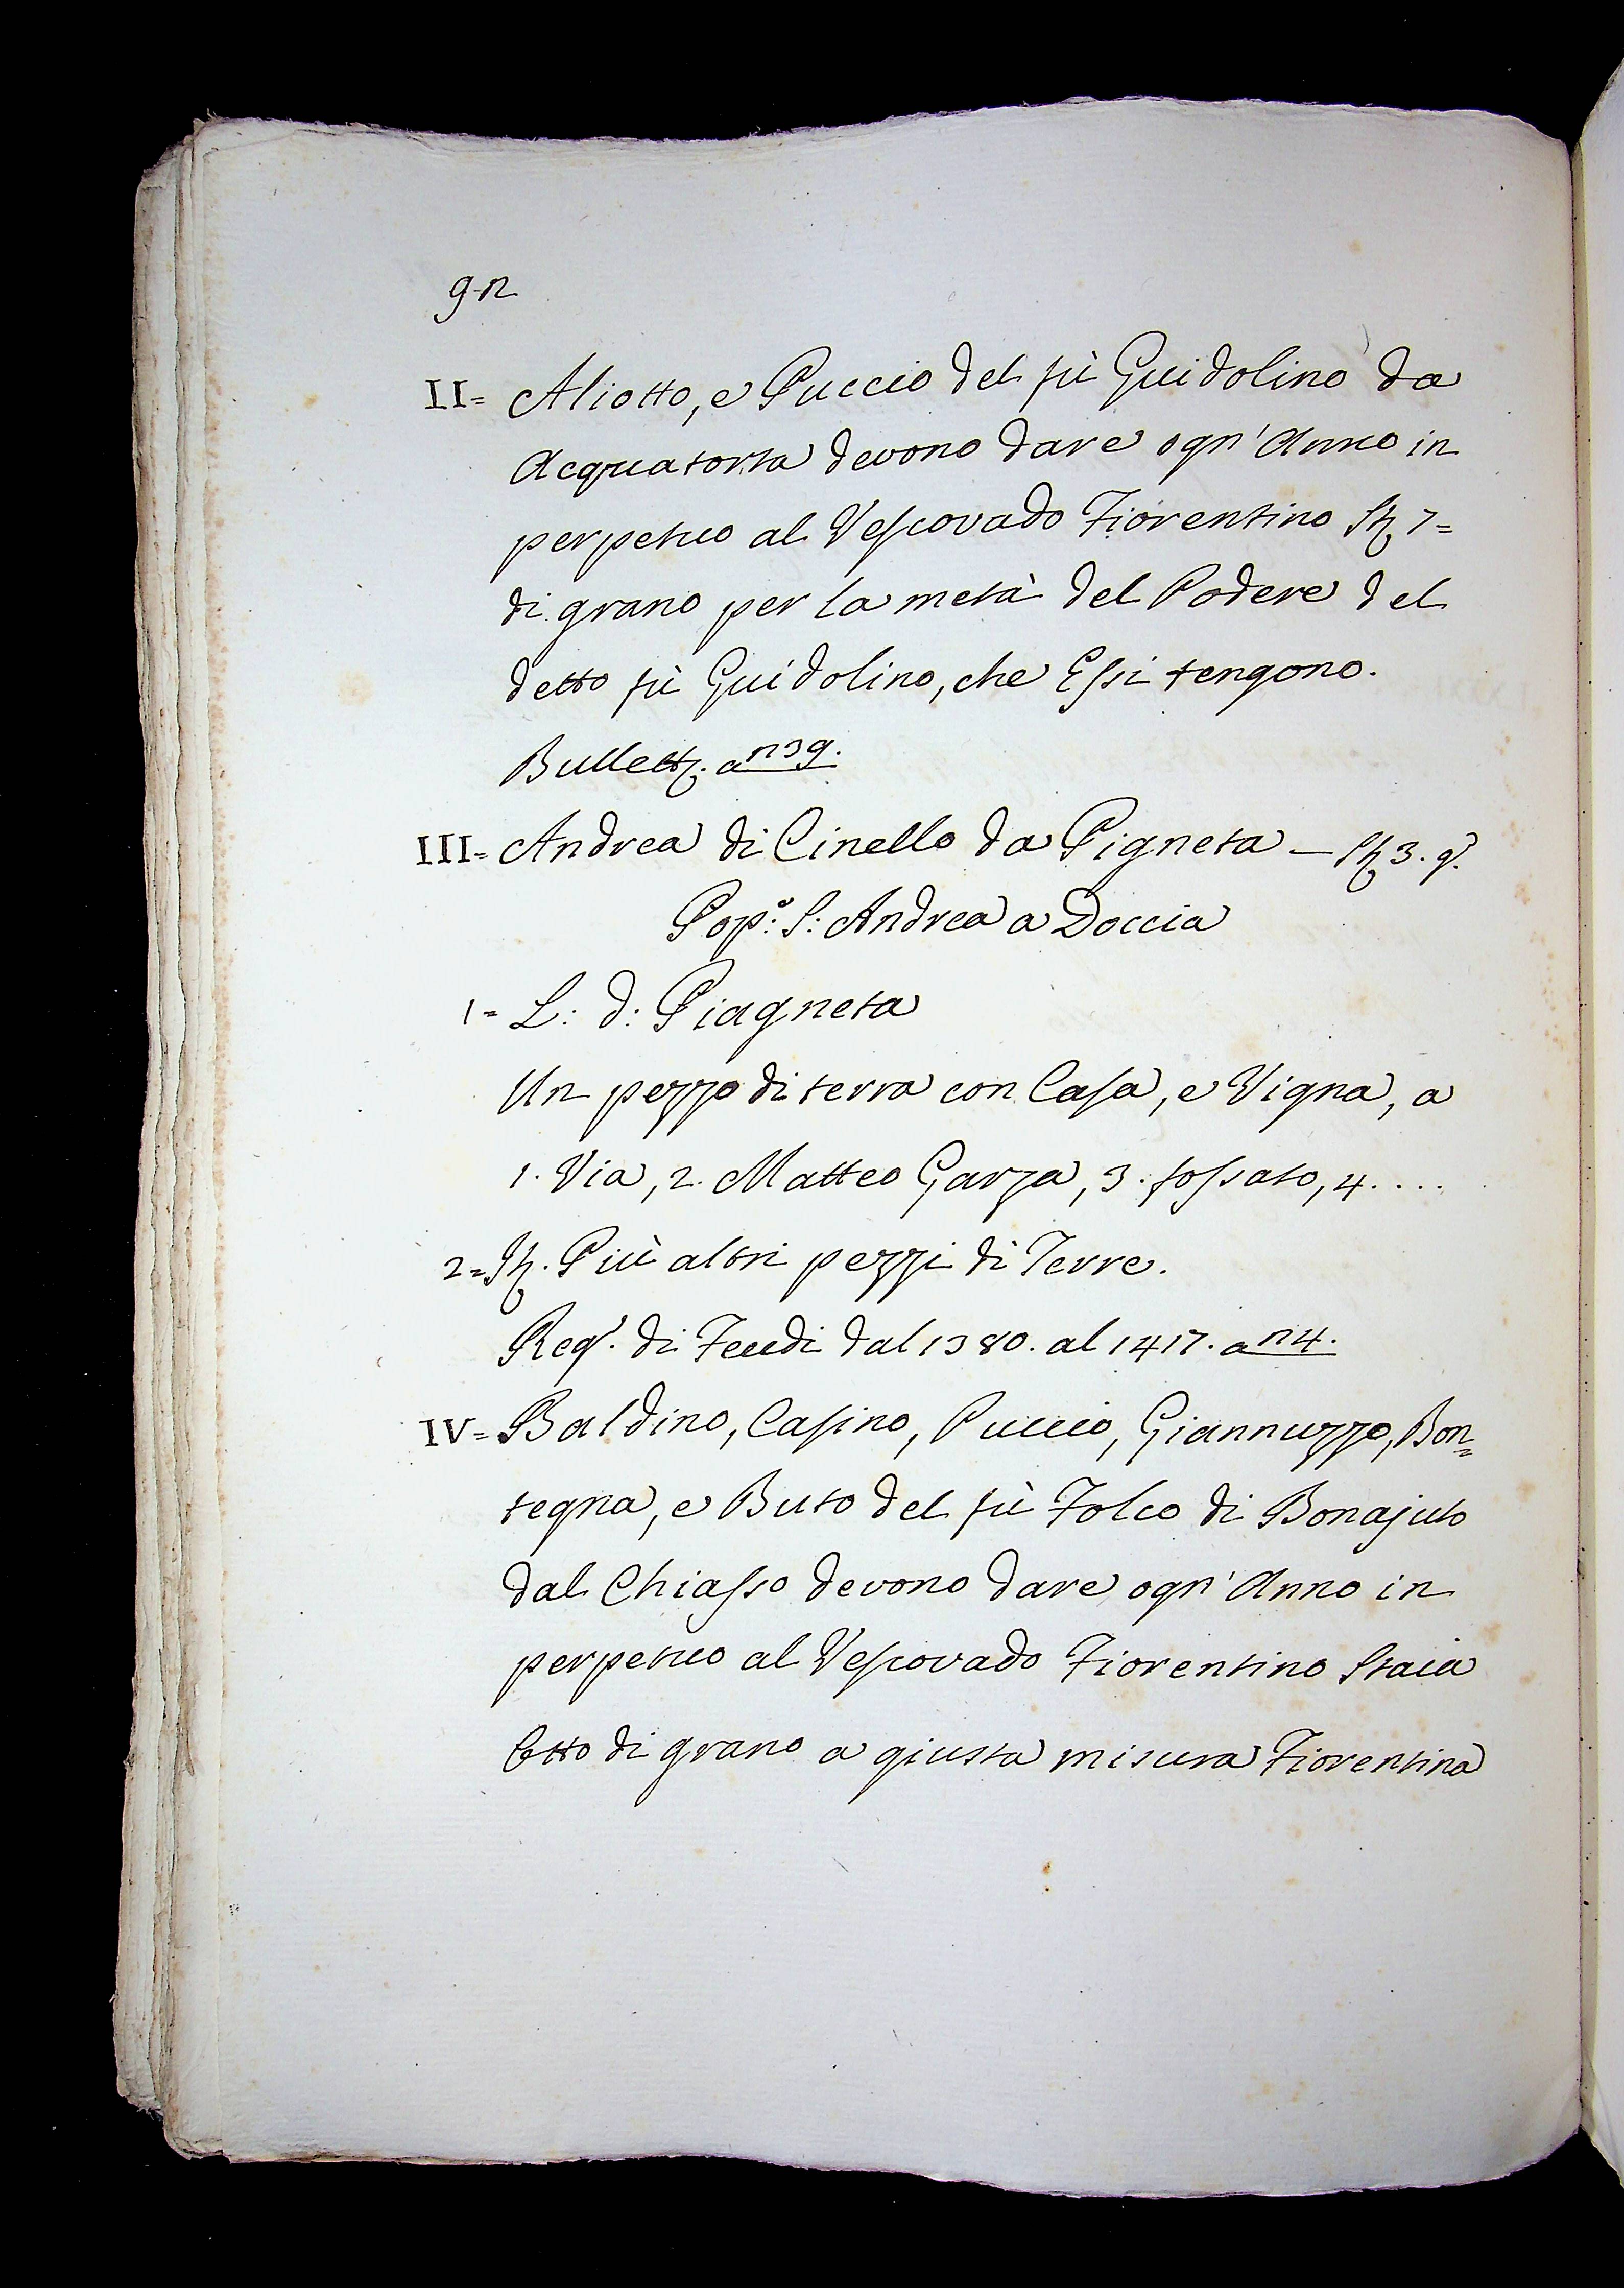 92
II= Aliotto, e Puccio del fù Guidolino da
Acquatorta devono dare ogn' Anno in
perpetuo al Vescovado Fiorentino St. 7=
di grano per la metà del Podere del
detto fù Guidolino, che Essi tengono.
Bullett. a 239.
III= Andrea di Cinello da Pigneta — St. 3. g.
Pop.º S: Andrea a Doccia
1= L: d: Piagneta
Un pezzo di terra con Casa, e Vigna, a
1. Via, 2. Matteo Garza, 3. fossato, 4....
2= It. Più altri pezzi di Terre.
Reg. di Feudi dal 1380. al 1417. a 24.
IV= Baldino, Casino, Puccio, Giannuzzo, Bon=
tegna, e Buto del fù Folco di Bonajuto
dal Chiasso devono dare ogn' Anno in
perpetuo al Vescovado Fiorentino Staia
Otto di grano a giusta misura Fiorentina